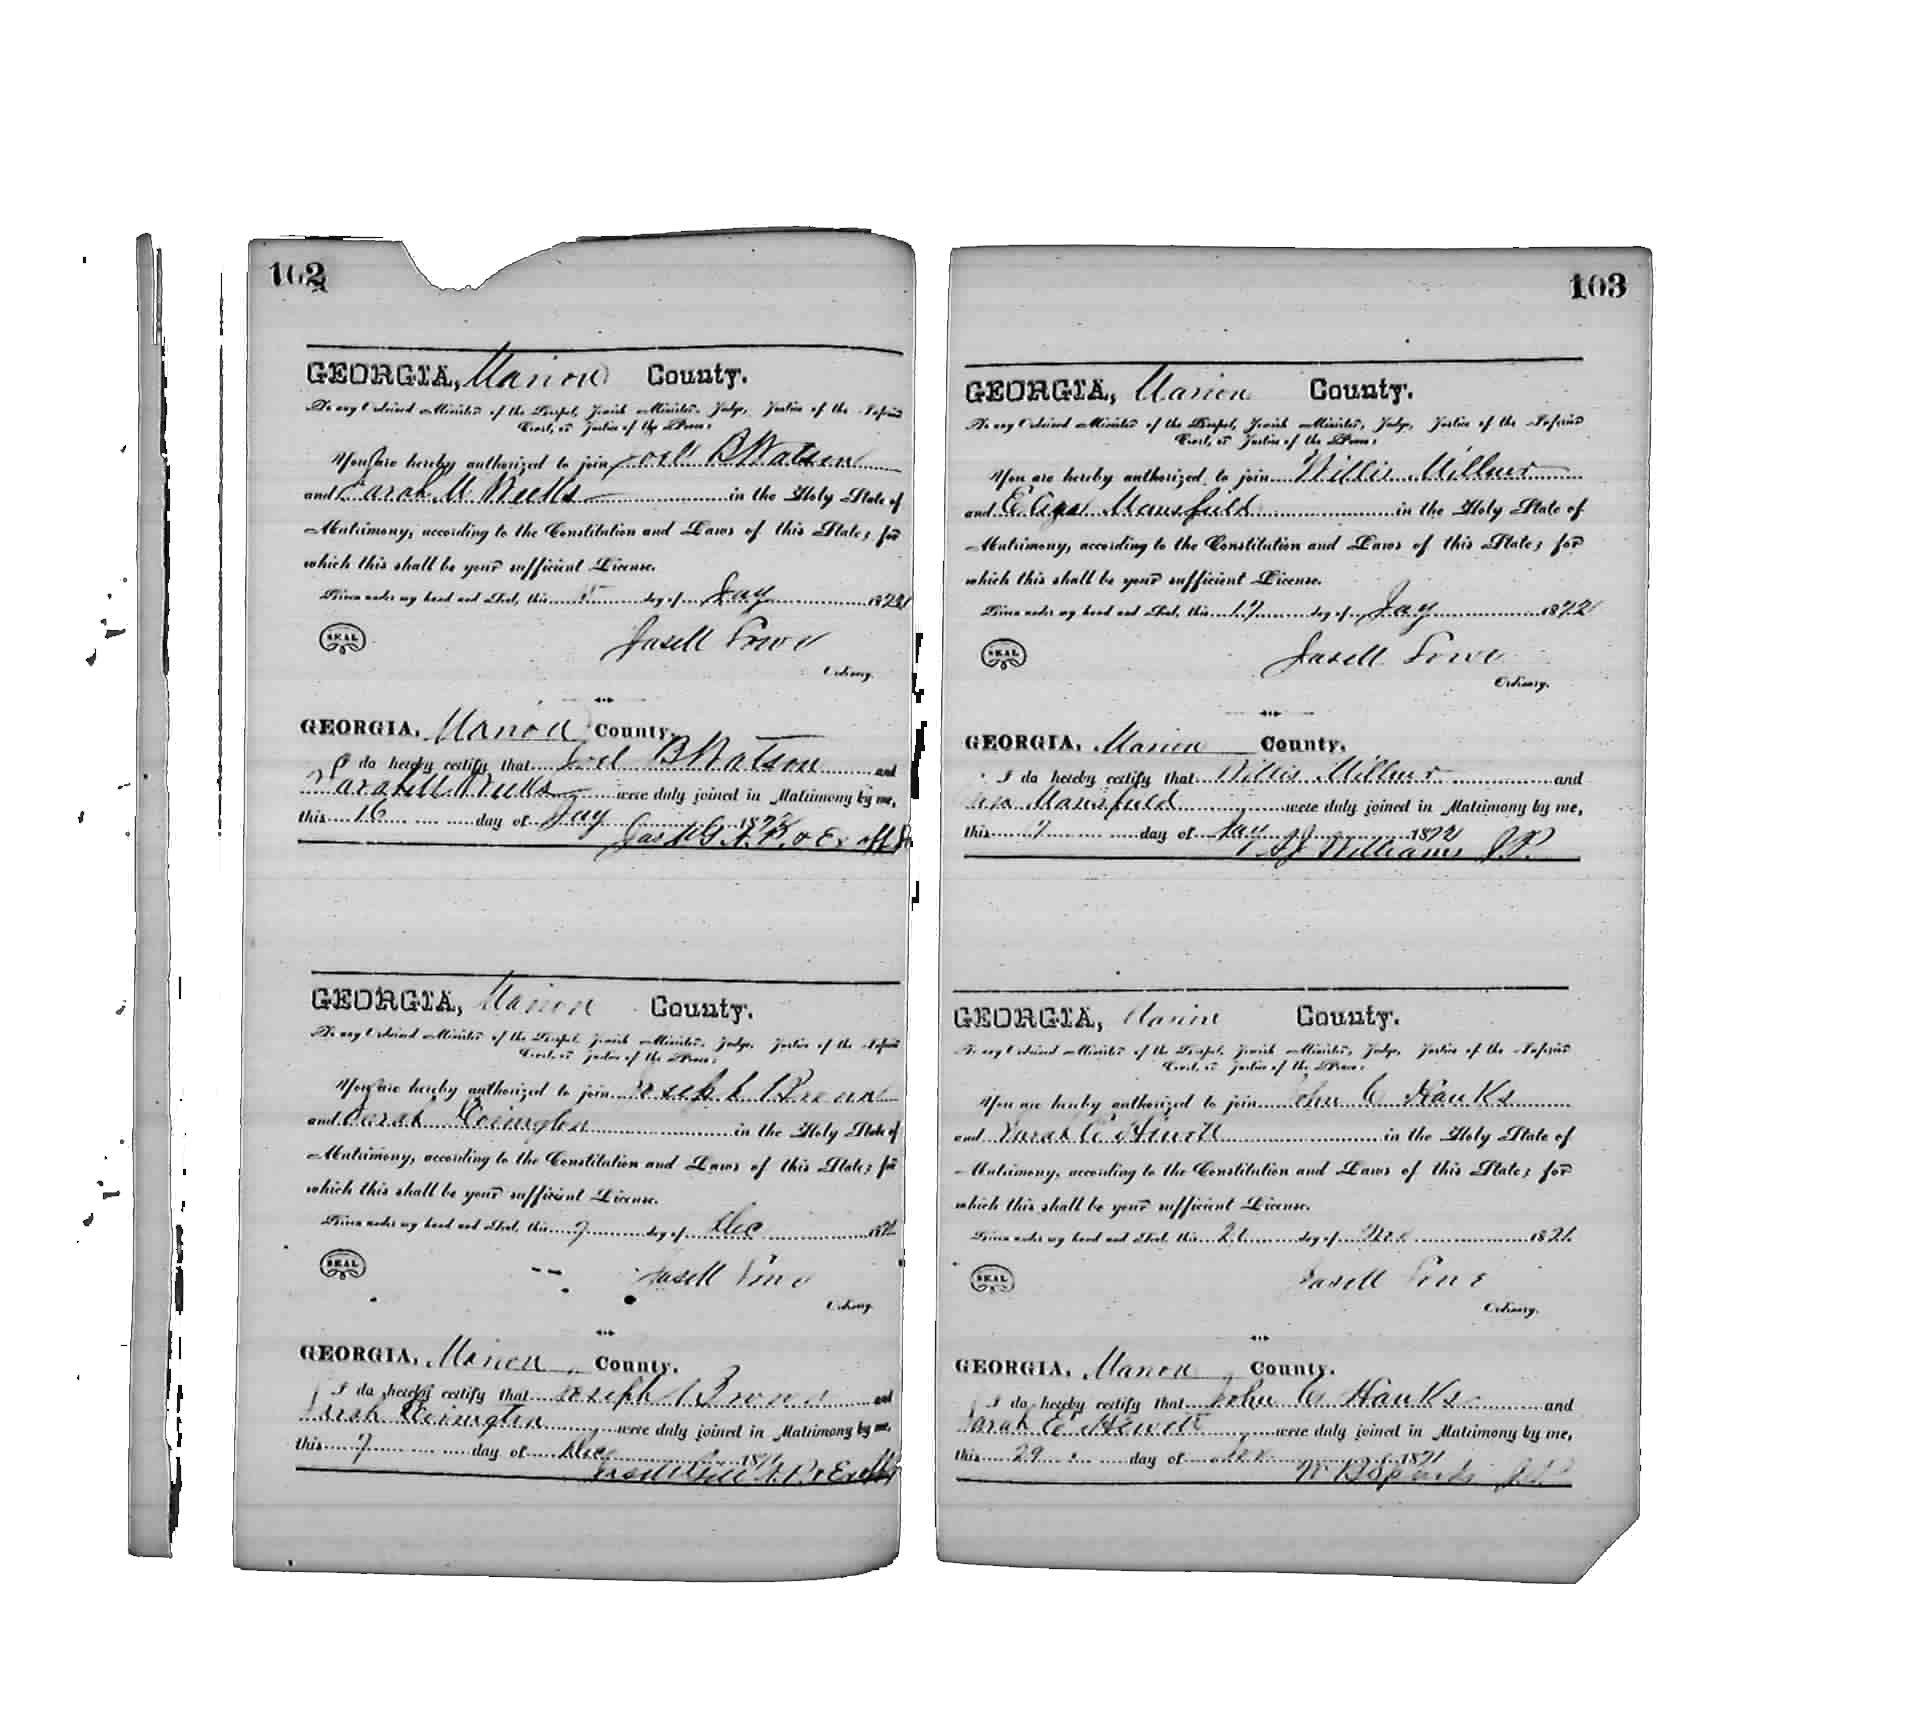 102
GEORGIA, Marion County.
To any Ordained Minister of the Gospel, Jewish Minister, Judge, Justice of the Inferior
Court, or Justice of the Peace:
You are hereby authorized to join Joel B Watson
and Sarah M Weeks in the Holy State of
Matrimony, according to the Constitution and Laws of this State; for
which this shall be your sufficient License.
Given under my hand and Seal, this day of Jay 1872
SEAL
Jasell Lowe
Ordinary.
GEORGIA, Marion County.
I do hereby certify that Joel B Watson and
Sarah M Weeks were duly joined in Matrimony by me,
this 16 day of Jay 1872
GEORGIA, Marion County.
To any Ordained Minister of the Gospel, Jewish Minister, Judge, Justice of the Inferior
Court, or Justice of the Peace:
You are hereby authorized to join Joseph Brown
and Sarah Covington in the Holy State of
Matrimony, according to the Constitution and Laws of this State; for
which this shall be your sufficient License.
Given under my hand and Seal, this 7 day of Dec 1871
SEAL
Jasell Lowe
Ordinary.
GEORGIA, Marion County.
I do hereby certify that Joseph Brown and
Sarah Covington were duly joined in Matrimony by me,
this 7 day of Dec 1871
103
GEORGIA, Marion County.
To any Ordained Minister of the Gospel, Jewish Minister, Judge, Justice of the Inferior
Court, or Justice of the Peace:
You are hereby authorized to join Willis Millner
and Mansfield in the Holy State of
Matrimony, according to the Constitution and Laws of this State; for
which this shall be your sufficient License.
Given under my hand and Seal, this 17 day of Jay 1872
SEAL
Jasell Lowe
Ordinary.
GEORGIA, Marion County.
I do hereby certify that Willis Millner and
Mansfield were duly joined in Matrimony by me,
this day of Jay 1872
Williams J.P.
GEORGIA, Marion County.
To any Ordained Minister of the Gospel, Jewish Minister, Judge, Justice of the Inferior
Court, or Justice of the Peace:
You are hereby authorized to join John C Hanks
and Sarah E Hewett in the Holy State of
Matrimony, according to the Constitution and Laws of this State; for
which this shall be your sufficient License.
Given under my hand and Seal, this 21 day of 1871
SEAL
Jasell Lowe
Ordinary.
GEORGIA, Marion County.
I do hereby certify that John C Hanks and
Sarah E Hewett were duly joined in Matrimony by me,
this 29 day of 1871